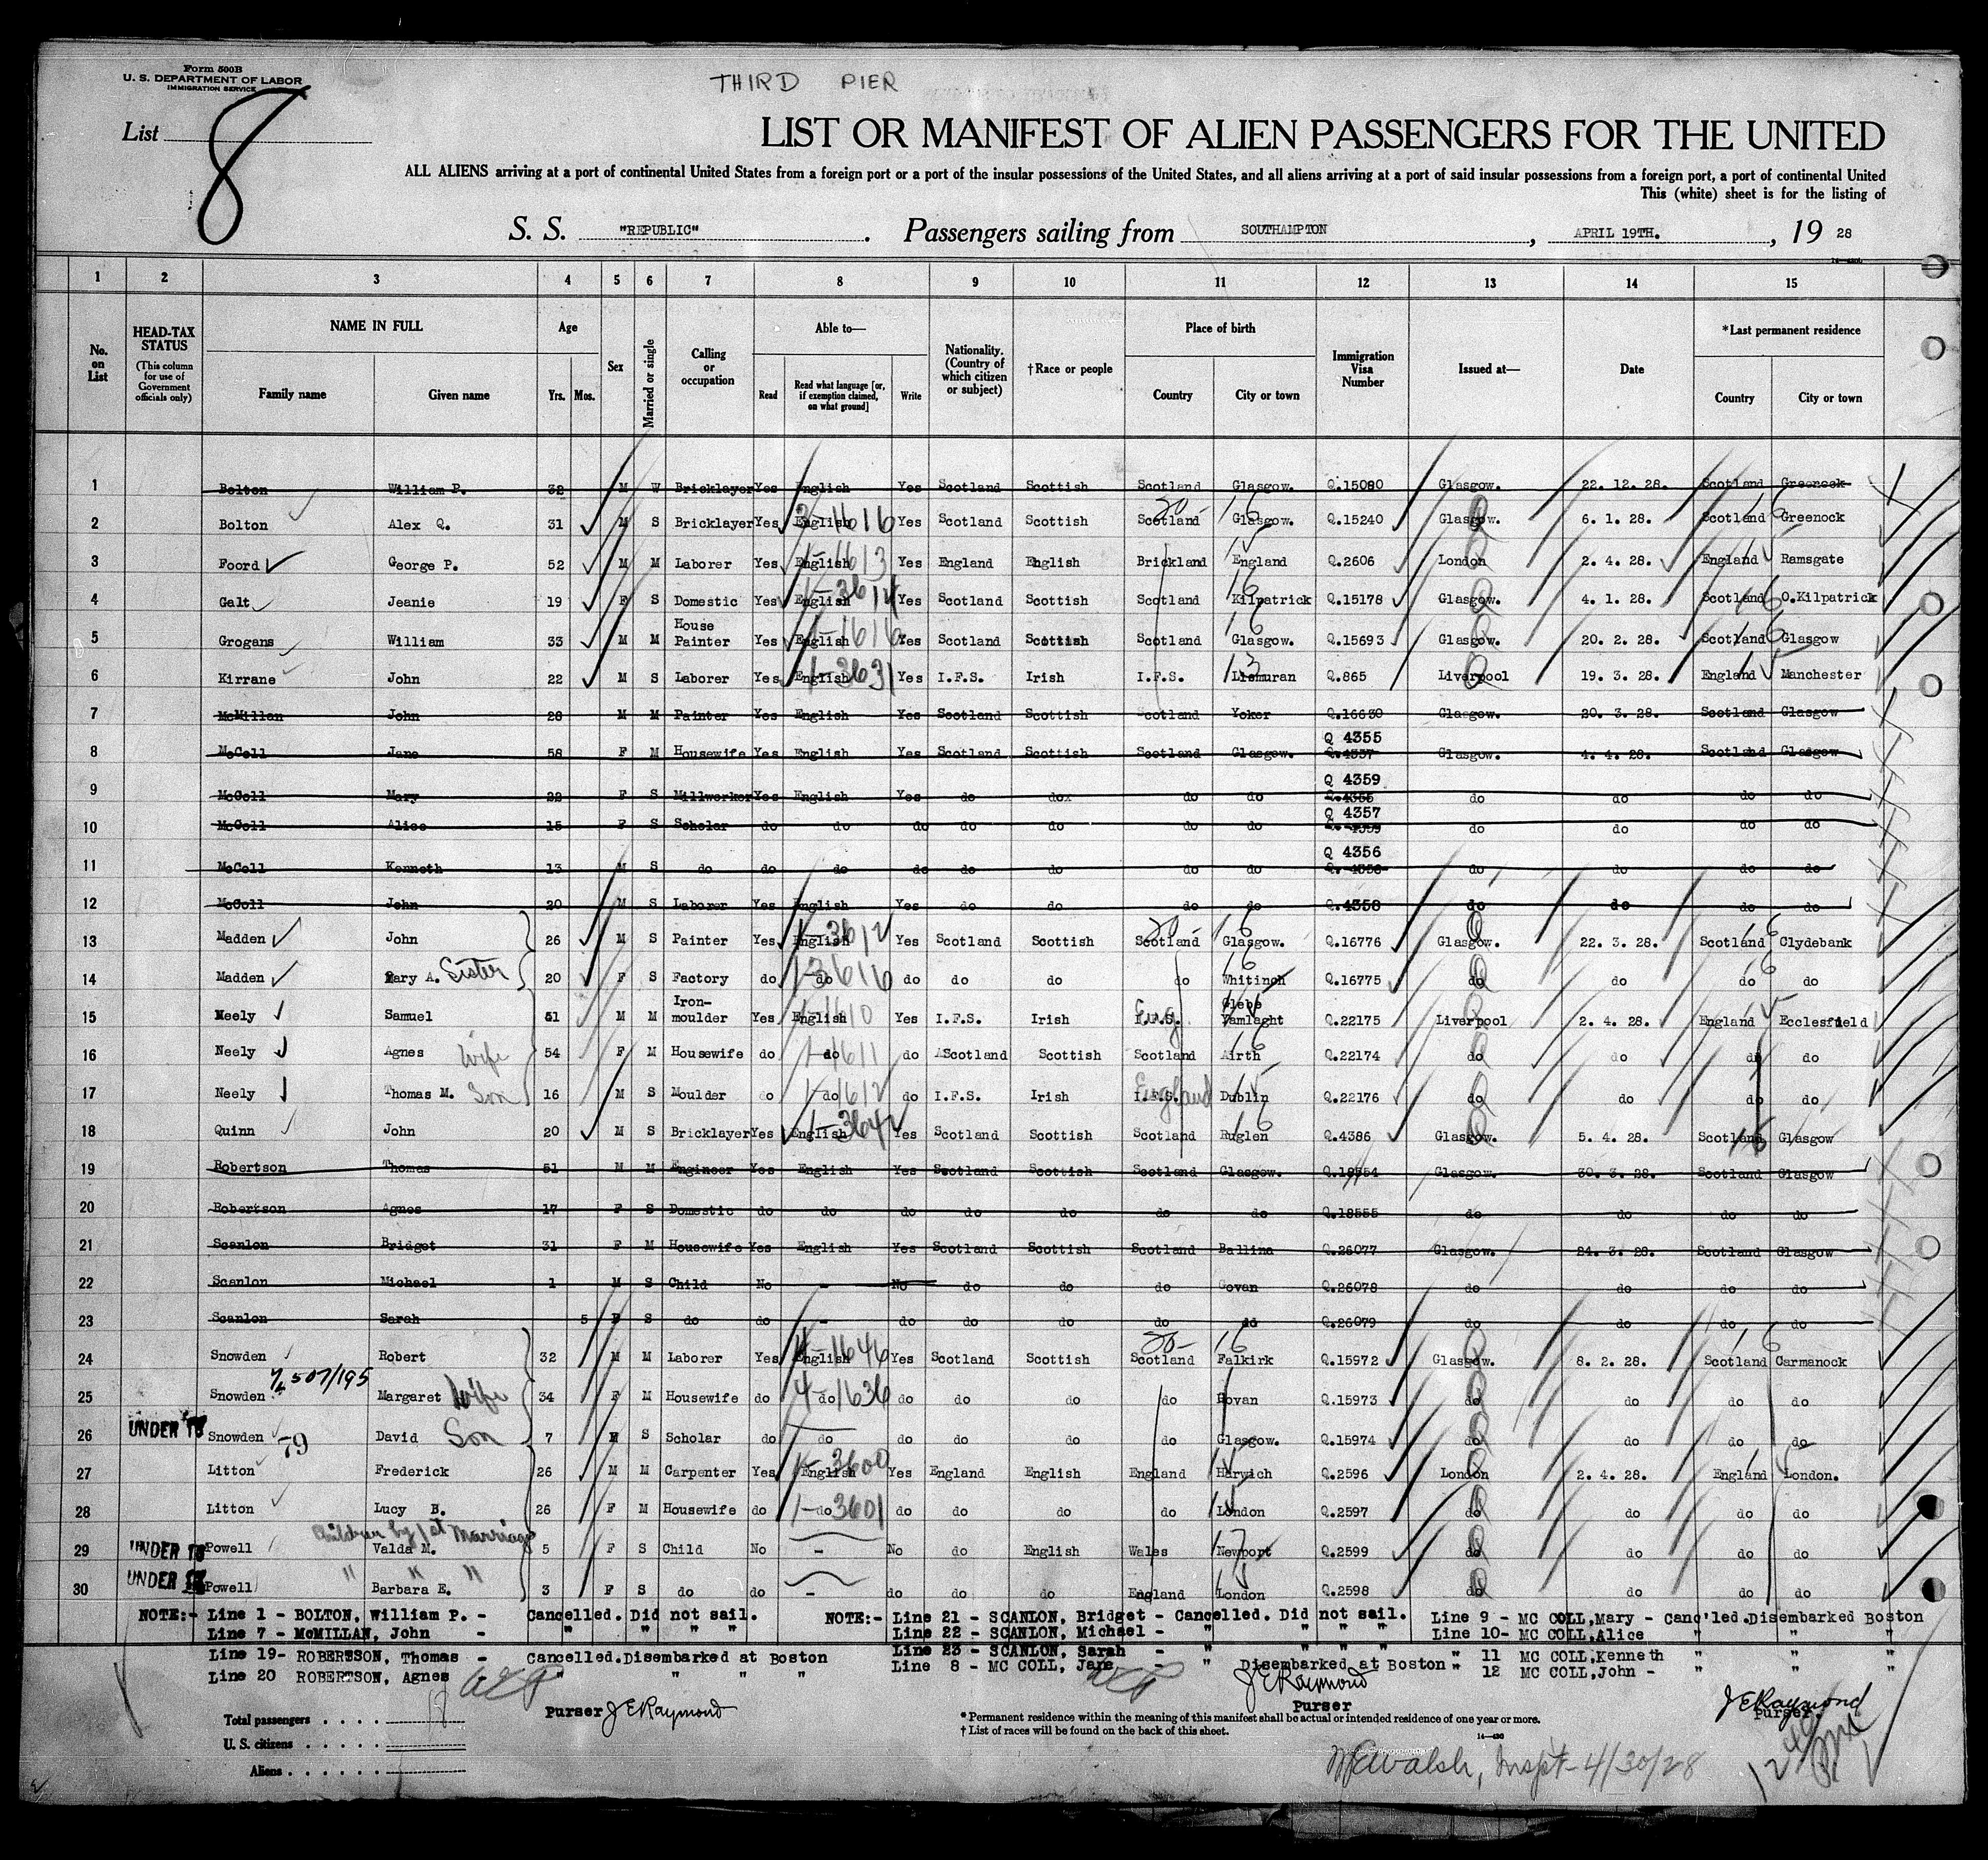 Form 500B
U. S. DEPARTMENT OF LABOR
IMMIGRATION SERVICE
THIRD PIER
List 8
LIST OR MANIFEST OF ALIEN PASSENGERS FOR THE UNITED
ALL ALIENS arriving at a port of continental United States from a foreign port or a port of the insular possessions of the United States, and all aliens arriving at a port of said insular possessions from a foreign port, a port of continental United
This (white) sheet is for the listing of
S. S. "REPUBLIC". Passengers sailing from SOUTHAMPTON, APRIL 19TH., 19 28
1 2 3 4 5 6 7 8 9 10 11 12 13 14 15
No. on List HEAD-TAX STATUS (This column for use of Government officials only) NAME IN FULL Family name Given name Age Yrs. Mos. Sex Married or single Calling or occupation Able to— Read Read what language [or, if exemption claimed, on what ground] Write Nationality. (Country of which citizen or subject) †Race or people Place of birth Country City or town Immigration Visa Number Issued at— Date *Last permanent residence Country City or town
1 Bolton William P. 32 M W Bricklayer Yes English Yes Scotland Scottish Scotland Glasgow. Q.15080 Glasgow. 22. 12. 28. Scotland Greenock
2 Bolton Alex Q. 31 M S Bricklayer Yes English Yes Scotland Scottish Scotland Glasgow. Q.15240 Glasgow. 6. 1. 28. Scotland Greenock
3 Foord George P. 52 M M Laborer Yes English Yes England English Brickland England Q.2606 London 2. 4. 28. England Ramsgate
4 Galt Jeanie 19 F S Domestic Yes English Yes Scotland Scottish Scotland Kilpatrick Q.15178 Glasgow. 4. 1. 28. Scotland O.Kilpatrick
5 Grogans William 33 M M House Painter Yes English Yes Scotland Scottish Scotland Glasgow. Q.15693 Glasgow. 20. 2. 28. Scotland Glasgow
6 Kirrane John 22 M S Laborer Yes English Yes I.F.S. Irish I.F.S. Lismuran Q.865 Liverpool 19. 3. 28. England Manchester
7 McMillan John 28 M M Painter Yes English Yes Scotland Scottish Scotland Yoker Q.16630 Glasgow. 20. 3. 28. Scotland Glasgow
8 McColl Jane 58 F M Housewife Yes English Yes Scotland Scottish Scotland Glasgow. Q 4355 Glasgow. 4. 4. 28. Scotland Glasgow
9 McColl Mary 22 F S Millworker Yes English Yes do do do do Q 4359 do do do do
10 McColl Alice 15 F S Scholar do do do do do do do Q 4357 do do do do
11 McColl Kenneth 13 M S do do do do do do do do Q 4356 do do do do
12 McColl John 20 M S Laborer Yes English Yes do do do do Q.4358 do do do do
13 Madden John 26 M S Painter Yes English Yes Scotland Scottish Scotland Glasgow. Q.16776 Glasgow. 22. 3. 28. Scotland Clydebank
14 Madden Mary A. Sister 20 F S Factory do do do do do do Whitinch Q.16775 do do do do
15 Neely Samuel 51 M M Iron-moulder Yes English Yes I.F.S. Irish I.F.S. Eng Glebe Tamlaght Q.22175 Liverpool 2. 4. 28. England Ecclesfield
16 Neely Agnes Wife 54 F M Housewife do do do Scotland Scottish Scotland Airth Q.22174 do do do do
17 Neely Thomas M. Son 16 M S Moulder do do do I.F.S. Irish I.F.S. England Dublin Q.22176 do do do do
18 Quinn John 20 M S Bricklayer Yes English Yes Scotland Scottish Scotland Ruglen Q.4386 Glasgow. 5. 4. 28. Scotland Glasgow
19 Robertson Thomas 51 M M Engineer Yes English Yes Scotland Scottish Scotland Glasgow. Q.18554 Glasgow. 30. 3. 28. Scotland Glasgow
20 Robertson Agnes 17 F S Domestic do do do do do do do Q.18555 do do do do
21 Scanlon Bridget 31 F M Housewife Yes English Yes Scotland Scottish Scotland Ballina Q.26077 Glasgow. 24. 3. 28. Scotland Glasgow
22 Scanlon Michael 1 M S Child No - No do do do Govan Q.26078 do do do do
23 Scanlon Sarah 5 F S do do - do do do do do Q.26079 do do do do
24 Snowden Robert 32 M M Laborer Yes English Yes Scotland Scottish Scotland Falkirk Q.15972 Glasgow. 8. 2. 28. Scotland Carmanock
25 Snowden Margaret Wife 34 F M Housewife do do do do do do Govan Q.15973 do do do do
26 UNDER 16 Snowden David Son 7 M S Scholar do do do do do do Glasgow. Q.15974 do do do do
27 Litton Frederick 26 M M Carpenter Yes English Yes England English England Harwich Q.2596 London 2. 4. 28. England London.
28 Litton Lucy B. 26 F M Housewife do do do do do do London Q.2597 do do do do
Children by 1st Marriage
29 UNDER 16 Powell Valda M. 5 F S Child No - No do English Wales Newport Q.2599 do do do do
30 UNDER 16 Powell Barbara E. 3 F S do do - do do do England London Q.2598 do do do do
NOTE:- Line 1 - BOLTON, William P. - Cancelled. Did not sail.
Line 7 - McMILLAN, John - " " " "
Line 19- ROBERTSON, Thomas - Cancelled.Disembarked at Boston
Line 20 ROBERTSON, Agnes " " " "
NOTE:- Line 21 - SCANLON, Bridget - Cancelled. Did not sail.
Line 22 - SCANLON, Michael - " " " "
Line 23 - SCANLON, Sarah - " " " "
Line 8 - MC COLL, Jane " Disembarked at Boston
Line 9 - MC COLL,Mary - Canc'led.Disembarked Boston
Line 10- MC COLL,Alice " " "
" 11 MC COLL,Kenneth " " "
" 12 MC COLL,John - " " "
Purser J E Raymond
J E Raymond
Purser
J E Raymond
Purser.
Total passengers . . . . 18
U. S. citizens . . . . .
Aliens . . . . . .
* Permanent residence within the meaning of this manifest shall be actual or intended residence of one year or more.
† List of races will be found on the back of this sheet.
Walsh, Inspt- 4/30/28